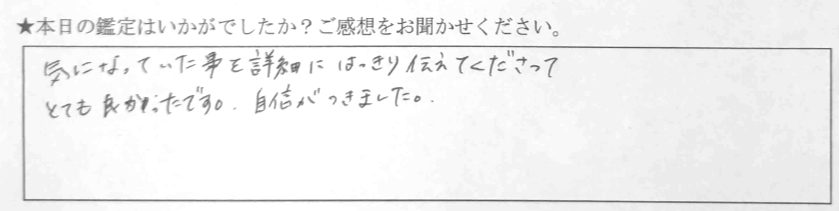 ★本日の鑑定はいかがでしたか？ご感想をお聞かせください。
気になっていた事を詳細にはっきり伝えてくださって
とても良かったです。自信がつきました。